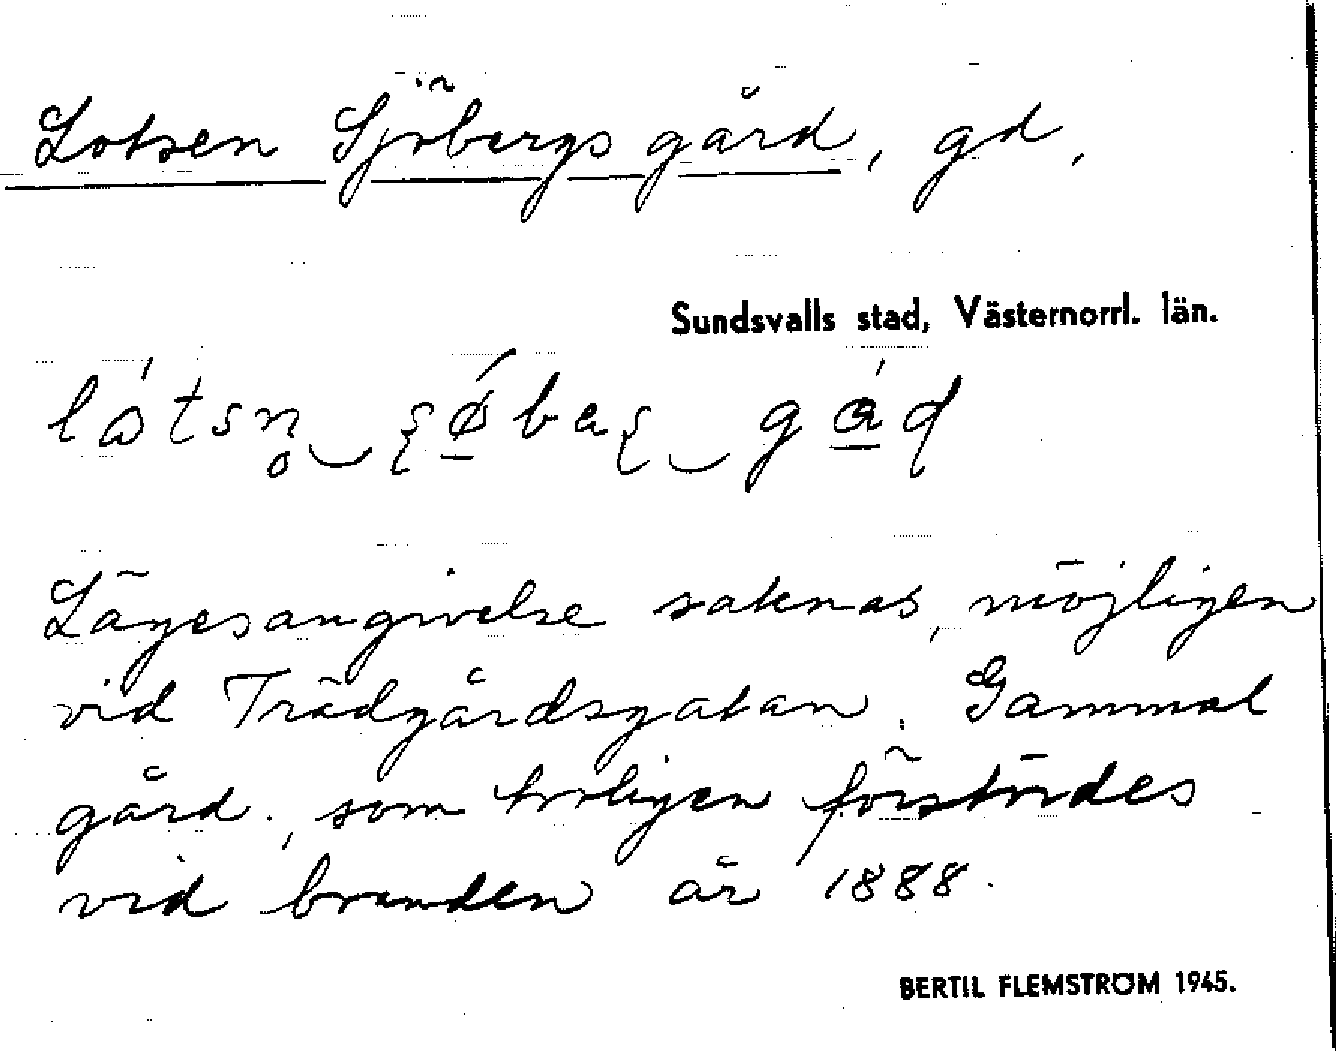 Lotsen Sjöbergs gård, gd,
Sundsvalls stad, Västernorrl. län.
Lägesangivelse saknas, möjligen
vid Trädgårdsgatan. Gammal
gård, som troligen förstördes
vid branden år 1888.
BERTIL FLEMSTRÖM 1945.